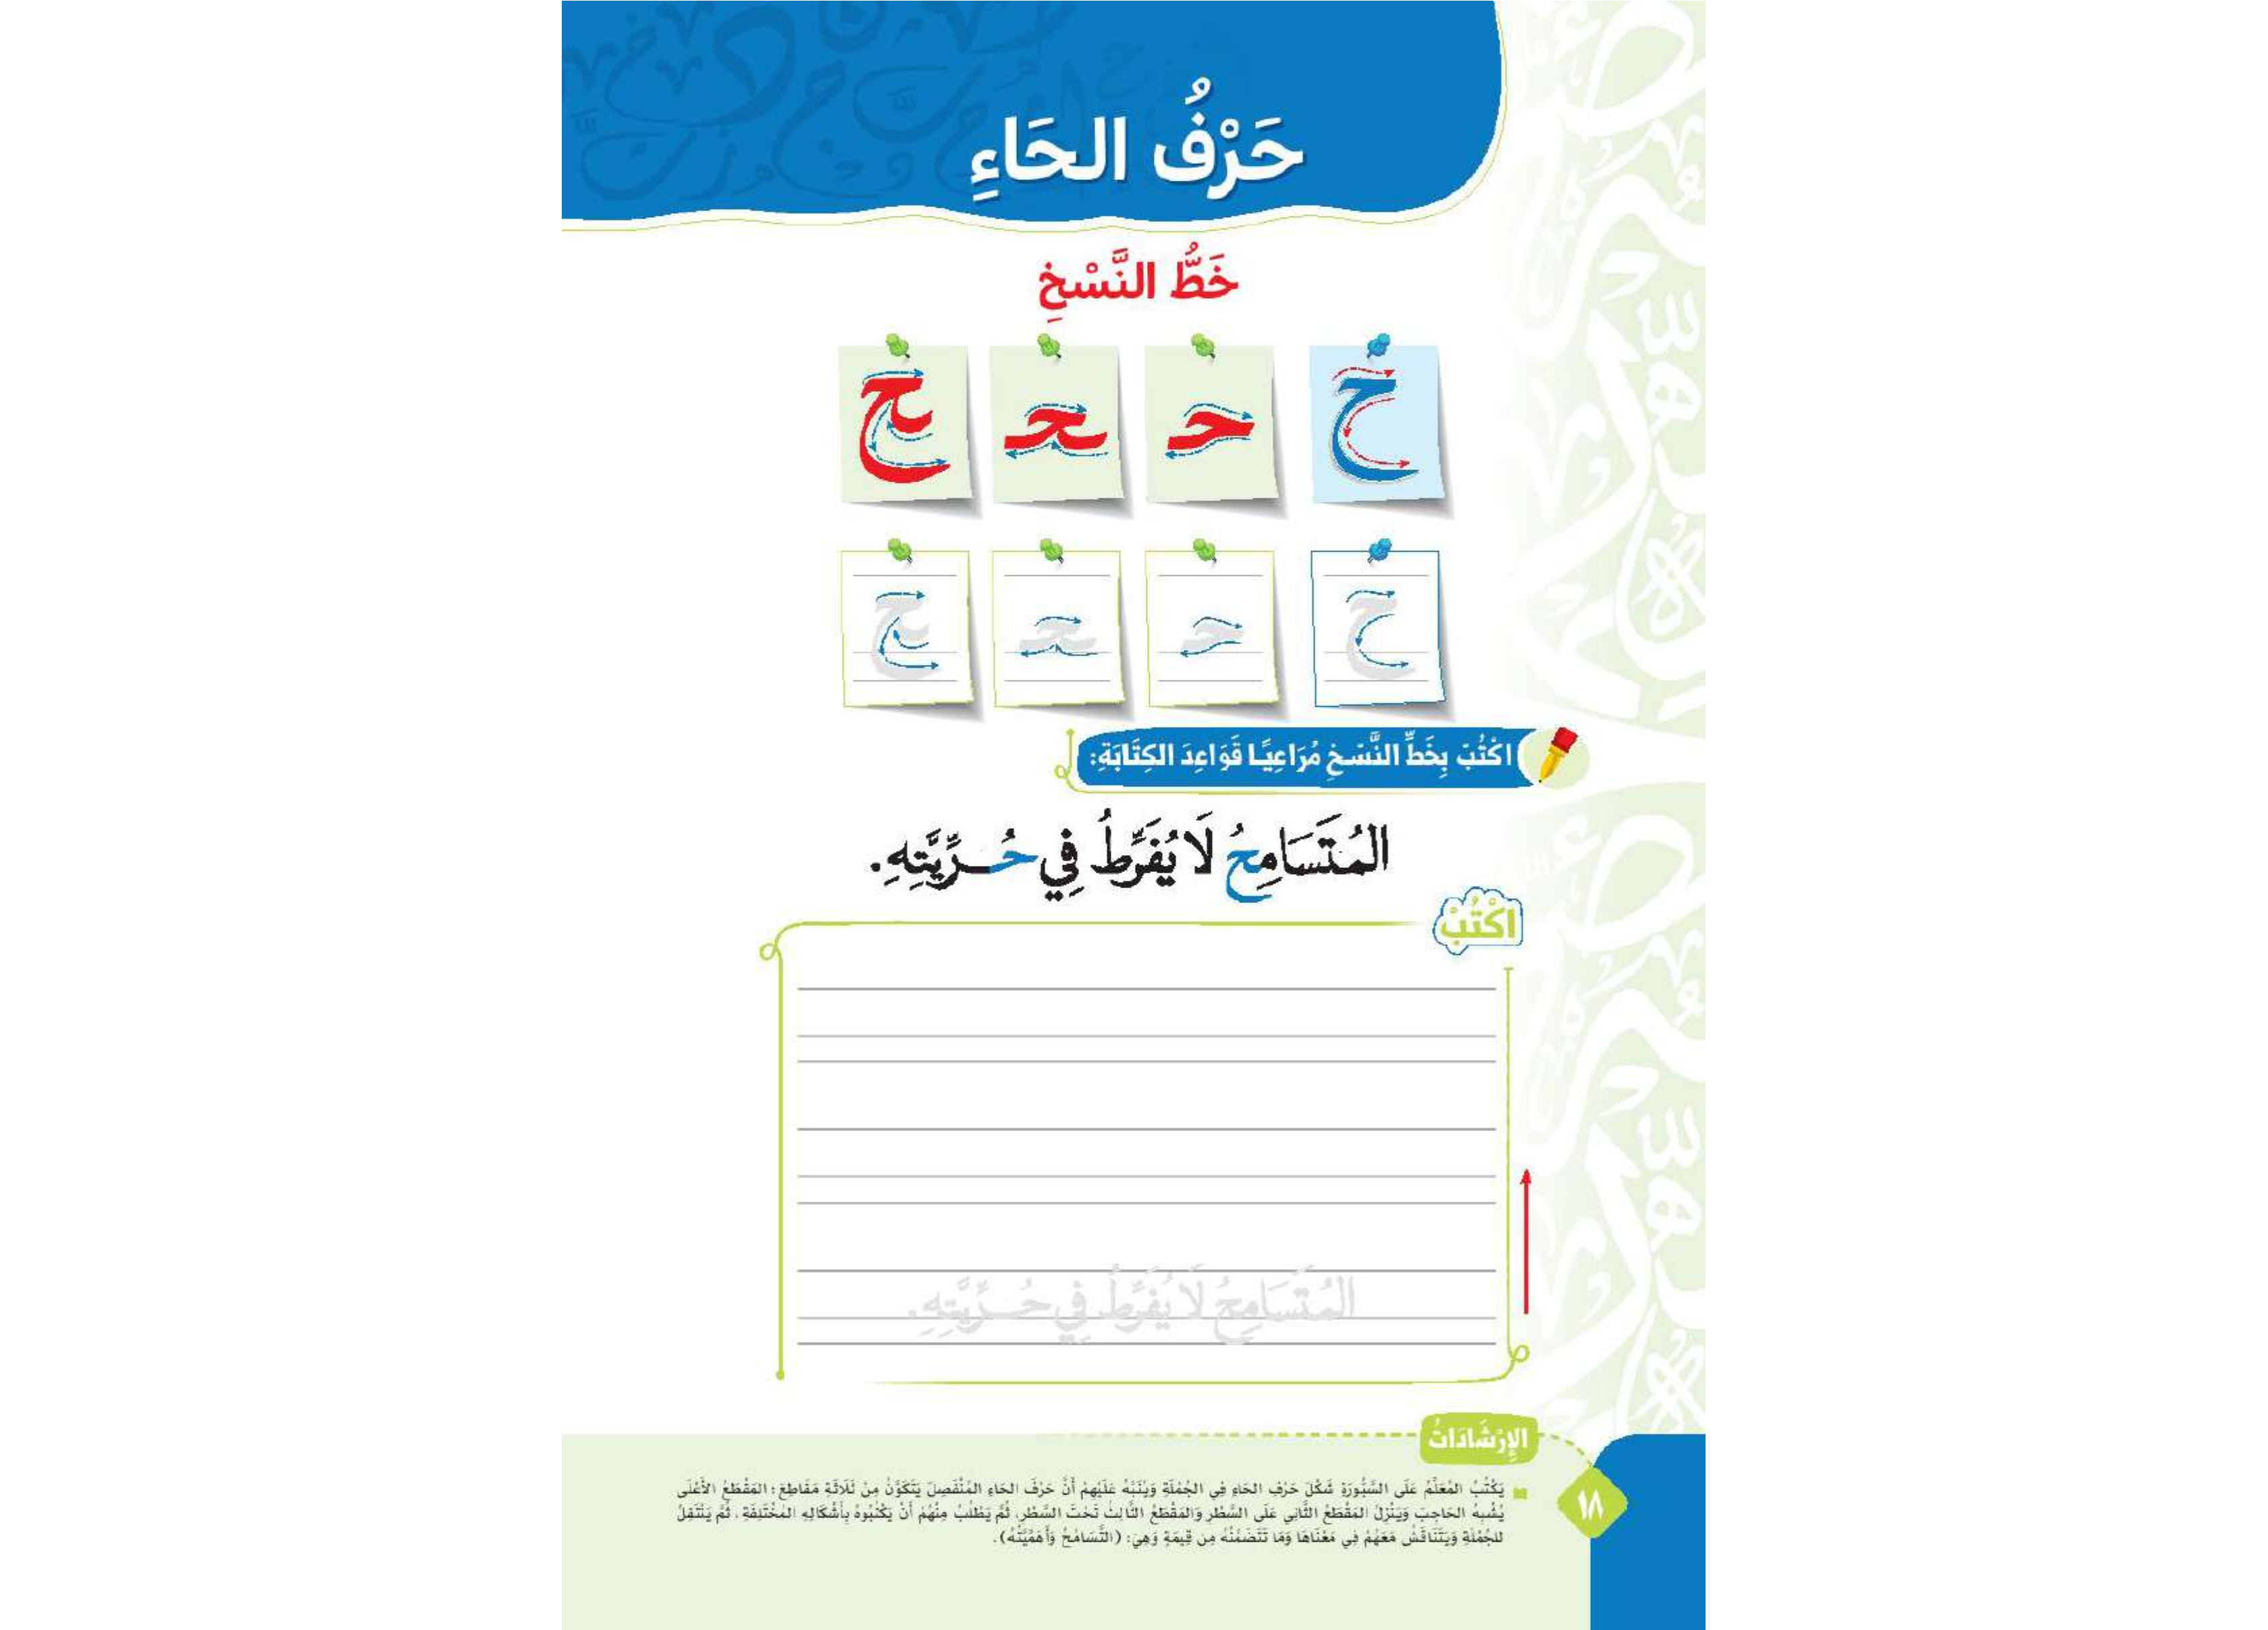 حَرْفُ الحَاءِ
خَطُّ النَّسْخِ
ح حـ ـحـ ـح
ح حـ ـحـ ـح
اكْتُبْ بِخَطِّ النَّسْخِ مُرَاعِيًا قَوَاعِدَ الكِتَابَةِ:
المُتَسَامِحُ لَا يُفَرِّطُ فِي حُـرِّيَّتِهِ.
اكْتُبْ
المُتَسَامِحُ لَا يُفَرِّطُ فِي حُـرِّيَّتِهِ.
الإِرْشَادَاتُ
يَكْتُبُ المُعَلِّمُ عَلَى السَّبُّورَةِ شَكْلَ حَرْفِ الحَاءِ فِي الجُمْلَةِ وَيُنَبِّهُ عَلَيْهِمْ أَنَّ حَرْفَ الحَاءِ المُنْفَصِلَ يَتَكَوَّنُ مِنْ ثَلَاثَةِ مَقَاطِعَ : المَقْطَعُ الأَعْلَى
يُشْبِهُ الحَاجِبَ وَيَنْزِلُ المَقْطَعُ الثَّانِي عَلَى السَّطْرِ وَالمَقْطَعُ الثَّالِثُ تَحْتَ السَّطْرِ، ثُمَّ يَطْلُبُ مِنْهُمْ أَنْ يَكْتُبُوهُ بِأَشْكَالِهِ المُخْتَلِفَةِ ، ثُمَّ يَنْتَقِلُ
لِلجُمْلَةِ وَيَتَنَاقَشُ مَعَهُمْ فِي مَعْنَاهَا وَمَا تَتَضَمَّنُهُ مِن قِيمَةٍ وَهِيَ: (التَّسَامُحُ وَأَهَمِّيَّتُهُ).
١٨